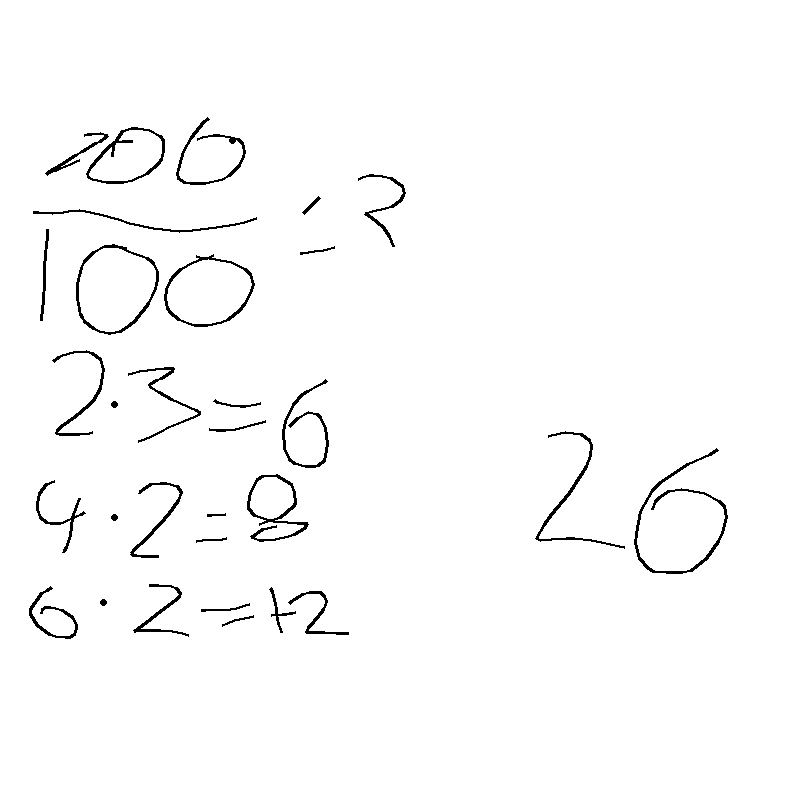 206
100 = 2
2·3=6
4·2=8
6·2=12
26